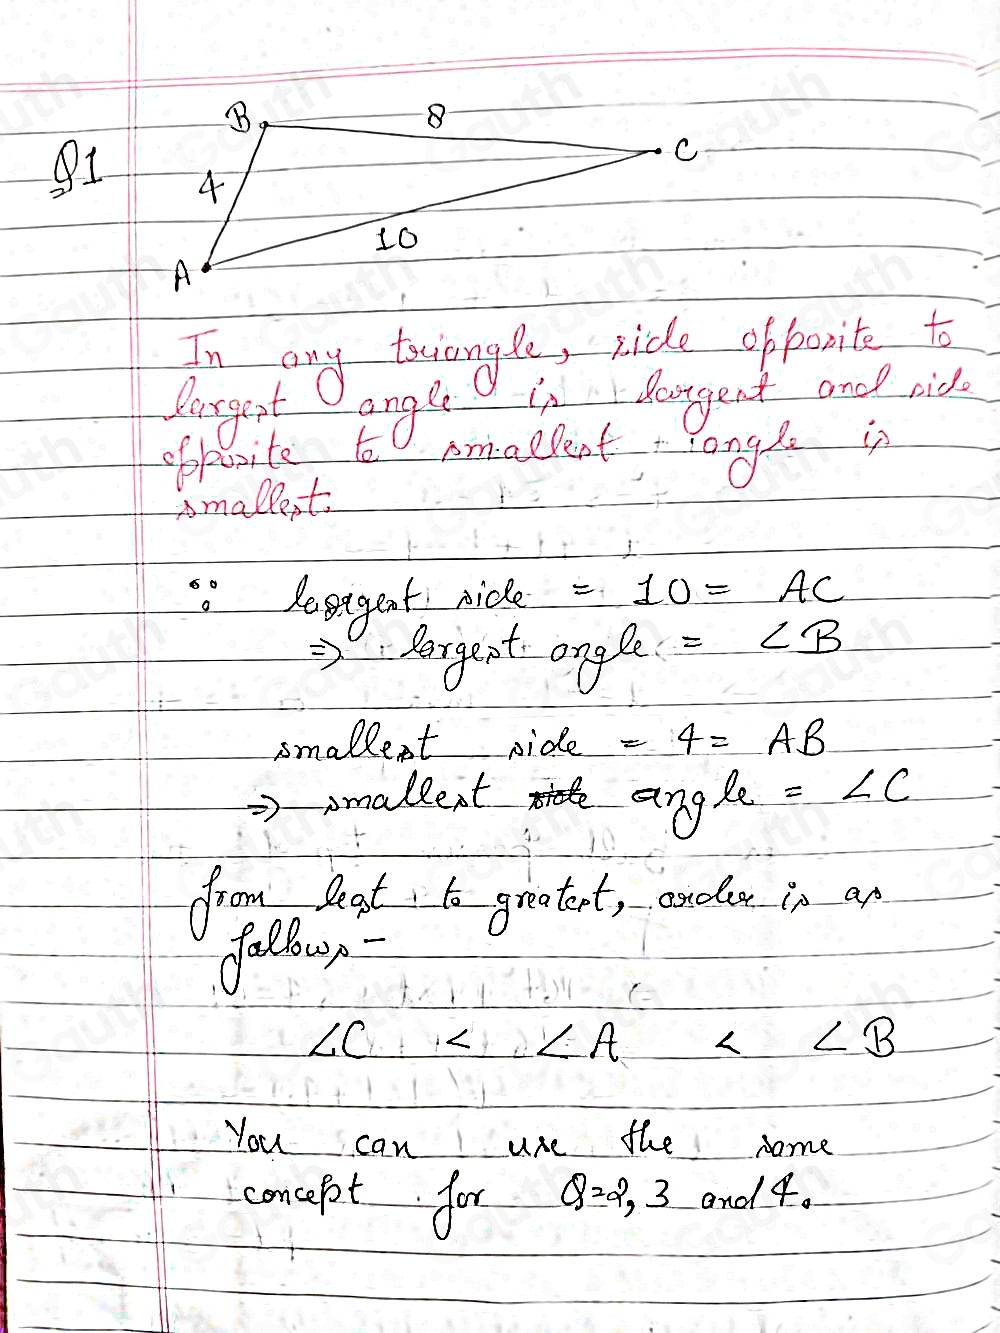 Q1
B 8 C
4
10
A
In any triangle, side opposite to
largest angle is largest and side
opposite to smallest angle is
smallest.
∵ largest side = 10 = AC
⇒ largest angle = ∠B
smallest side = 4 = AB
⇒ smallest side angle = ∠C
from least to greatest, order is as
follows -
∠C < ∠A < ∠B
You can use the same
concept for Q=2, 3 and 4.
Gauth